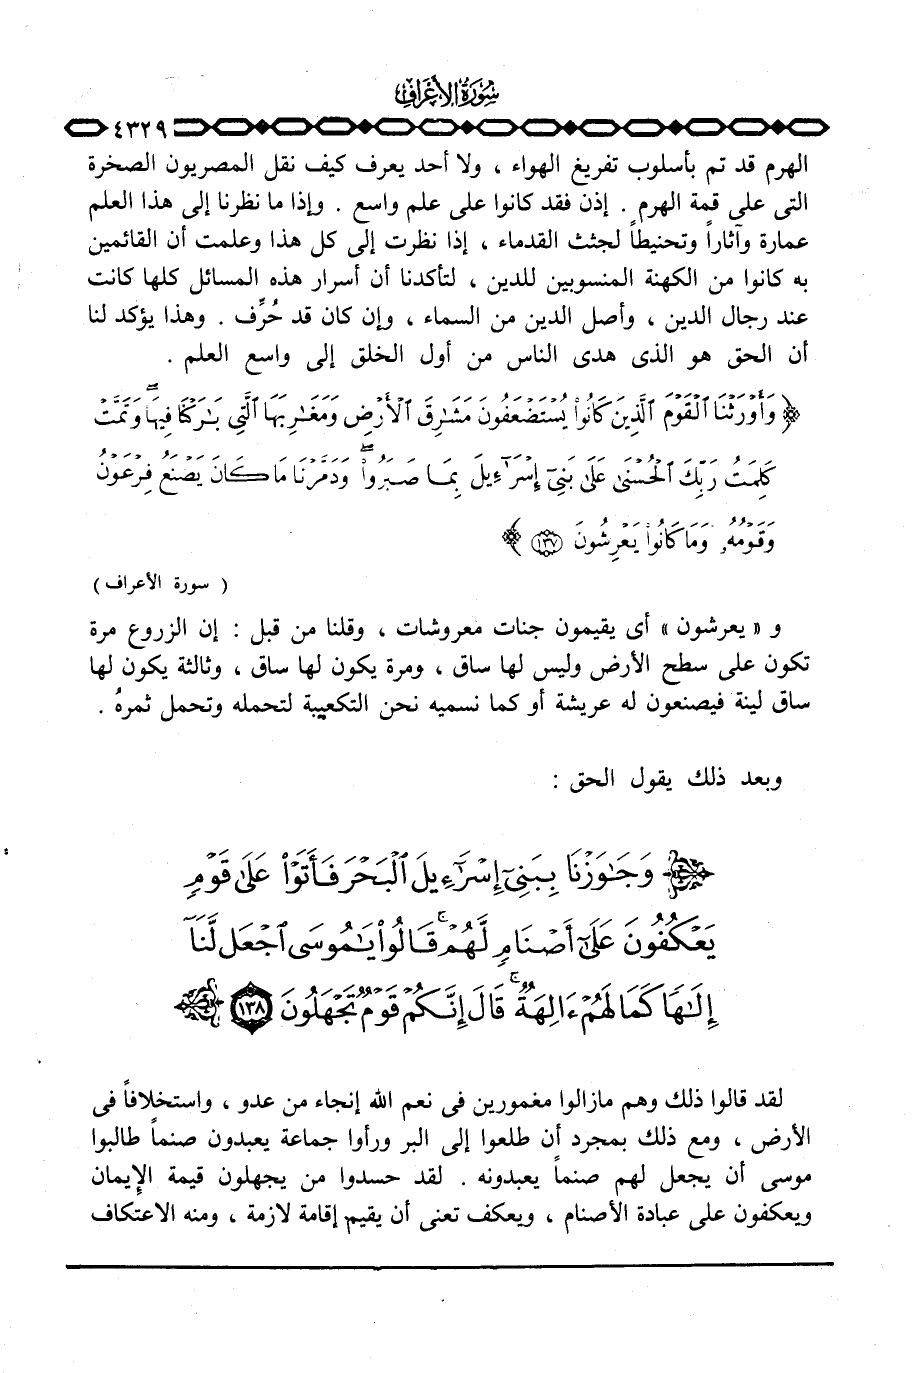 سورة الأعراف
٤٣٢٩
الهرم قد تم بأسلوب تفريغ الهواء ، ولا أحد يعرف كيف نقل المصريون الصخرة
التى على قمة الهرم . إذن فقد كانوا على علم واسع . وإذا ما نظرنا إلى هذا العلم
عمارة وآثاراً وتحنيطاً لجثث القدماء ، إذا نظرت إلى كل هذا وعلمت أن القائمين
به كانوا من الكهنة المنسوبين للدين ، لتأكدنا أن أسرار هذه المسائل كلها كانت
عند رجال الدين ، وأصل الدين من السماء ، وإن كان قد حُرِّف . وهذا يؤكد لنا
أن الحق هو الذى هدى الناس من أول الخلق إلى واسع العلم .
﴿ وَأَوْرَثْنَا ٱلْقَوْمَ ٱلَّذِينَ كَانُوا۟ يُسْتَضْعَفُونَ مَشَٰرِقَ ٱلْأَرْضِ وَمَغَٰرِبَهَا ٱلَّتِى بَٰرَكْنَا فِيهَا ۖ وَتَمَّتْ
كَلِمَتُ رَبِّكَ ٱلْحُسْنَىٰ عَلَىٰ بَنِىٓ إِسْرَٰٓءِيلَ بِمَا صَبَرُوا۟ ۖ وَدَمَّرْنَا مَا كَانَ يَصْنَعُ فِرْعَوْنُ
وَقَوْمُهُۥ وَمَا كَانُوا۟ يَعْرِشُونَ ١٣٧ ﴾
( سورة الأعراف )
و « يعرشون » أى يقيمون جنات معروشات ، وقلنا من قبل : إن الزروع مرة
تكون على سطح الأرض وليس لها ساق ، ومرة يكون لها ساق ، وثالثة يكون لها
ساق لينة فيصنعون له عريشة أو كما نسميه نحن التكعيبة لتحمله وتحمل ثمرهُ .
وبعد ذلك يقول الحق :
وَجَٰوَزْنَا بِبَنِىٓ إِسْرَٰٓءِيلَ ٱلْبَحْرَ فَأَتَوْا۟ عَلَىٰ قَوْمٍ
يَعْكُفُونَ عَلَىٰٓ أَصْنَامٍ لَّهُمْ ۚ قَالُوا۟ يَٰمُوسَى ٱجْعَل لَّنَآ
إِلَٰهًا كَمَا لَهُمْ ءَالِهَةٌ ۚ قَالَ إِنَّكُمْ قَوْمٌ تَجْهَلُونَ ١٣٨
لقد قالوا ذلك وهم مازالوا مغمورين فى نعم الله إنجاء من عدو ، واستخلافاً فى
الأرض ، ومع ذلك بمجرد أن طلعوا إلى البر ورأوا جماعة يعبدون صنماً طالبوا
موسى أن يجعل لهم صنماً يعبدونه . لقد حسدوا من يجهلون قيمة الإيمان
ويعكفون على عبادة الأصنام ، ويعكف تعنى أن يقيم إقامة لازمة ، ومنه الاعتكاف